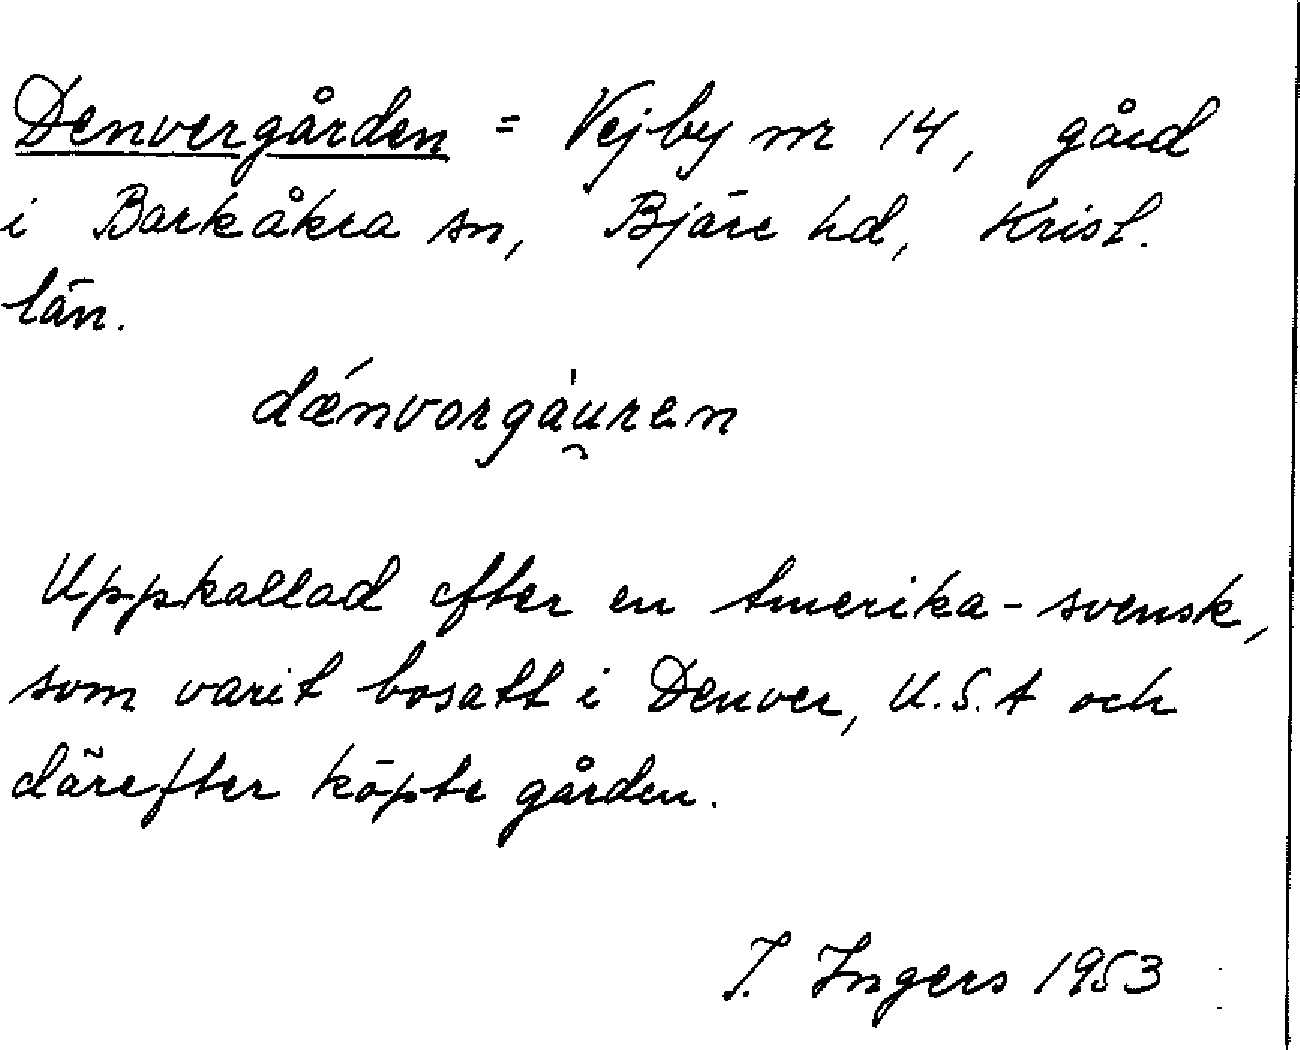 Denvergården = Vejby nr 14, gård
i Barkåkra sn, Bjäre hd, Krist.
län.
dǽnvorgáu̯ren
Uppkallad efter en Amerika-svensk,
som varit bosatt i Denver, U.S.A och
därefter köpte gården.
I. Ingers 1953